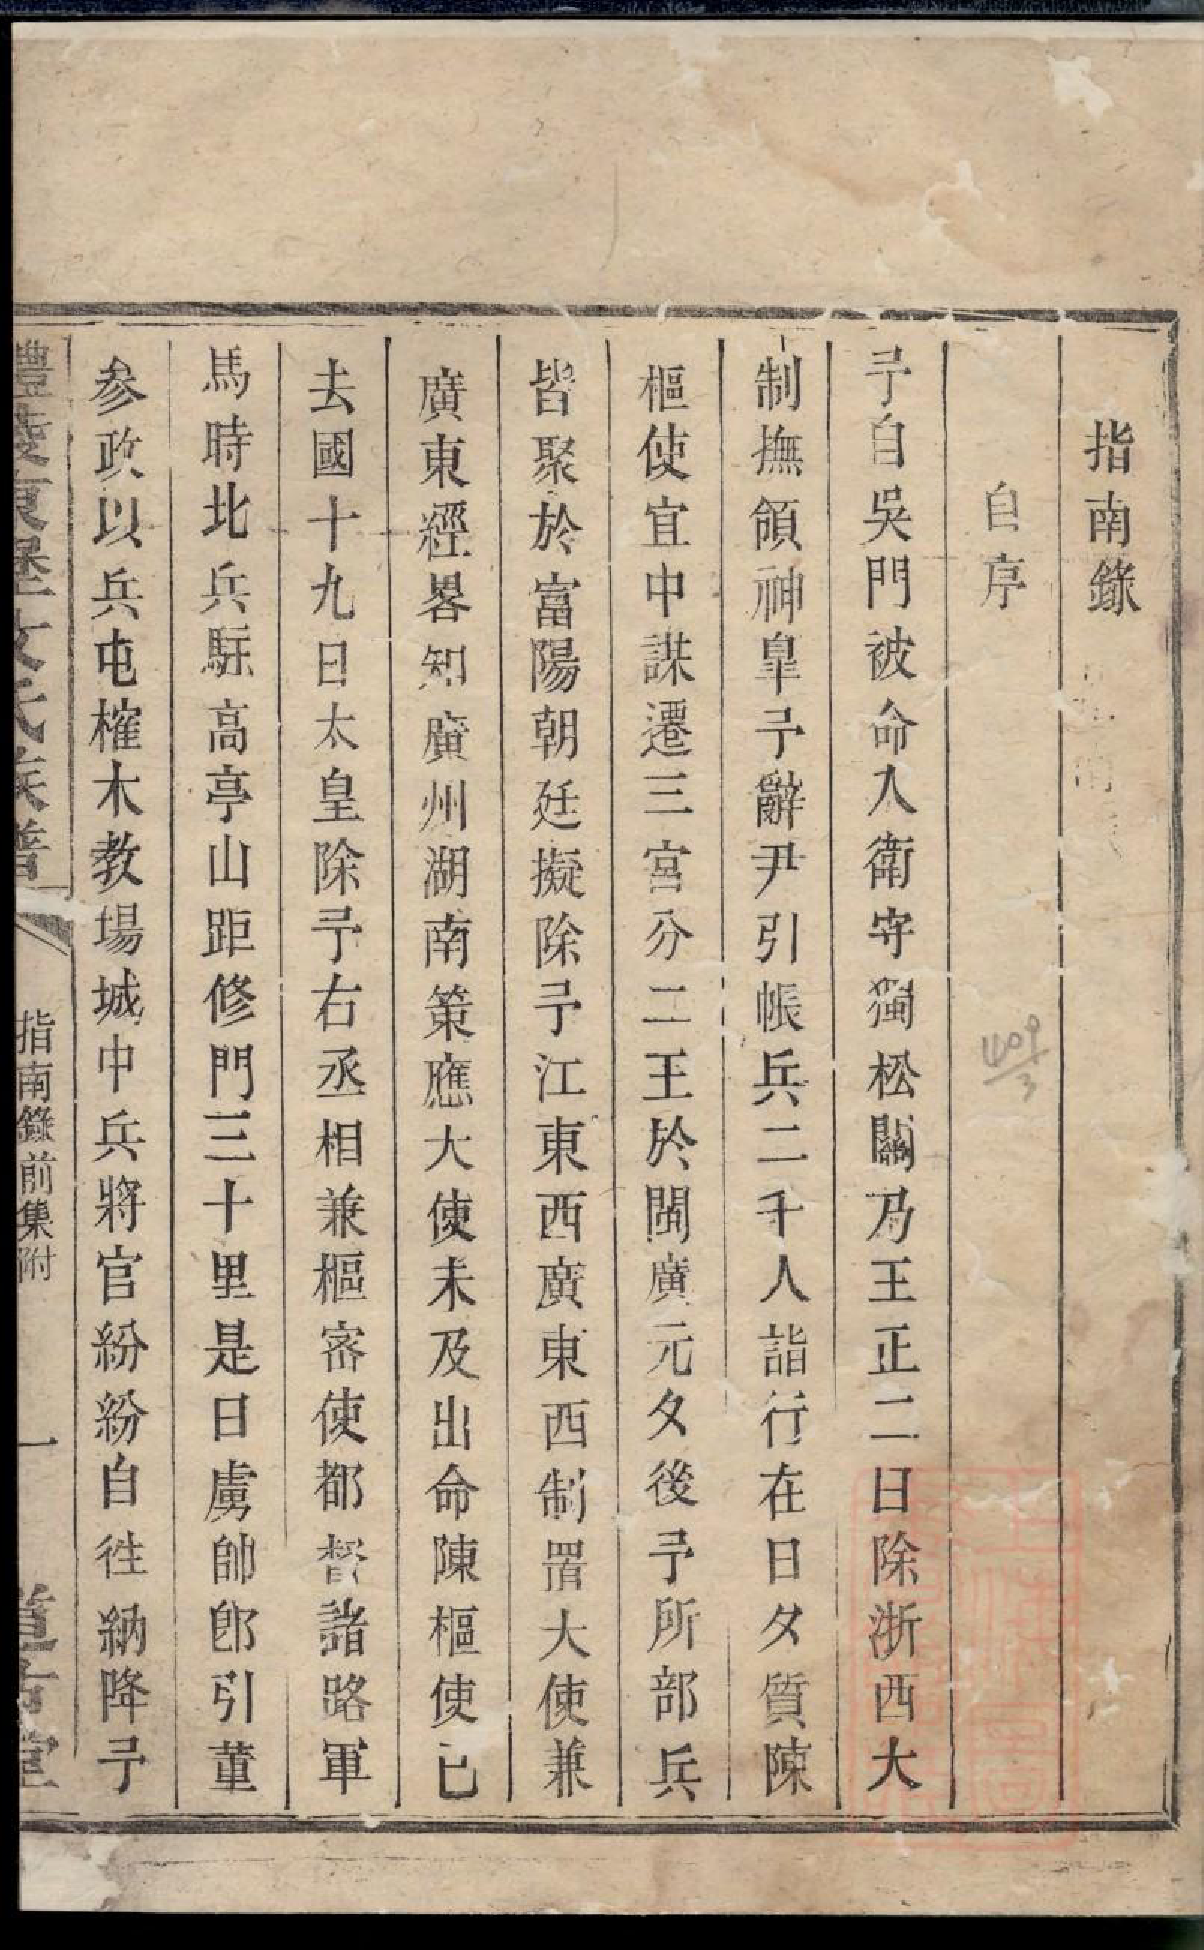 指南錄
自序
予自吳門被命入衛守獨松關乃王正二日除浙西大
制撫領神臯予辭尹引帳兵二千人詣行在日夕質陳
樞使宜中謀遷三宮分二王於閩廣元夕後予所部兵
皆聚於富陽朝廷擬除予江東西廣東西制置大使兼
廣東經畧知廣州湖南策應大使未及出命陳樞使已
去國十九日太皇除予右丞相兼樞密使都督諸路軍
馬時北兵駐高亭山距修門三十里是日虜帥即引董
參政以兵屯榷木教場城中兵將官紛紛自徃納降予
醴陵東堡文氏族譜
指南錄前集附
一